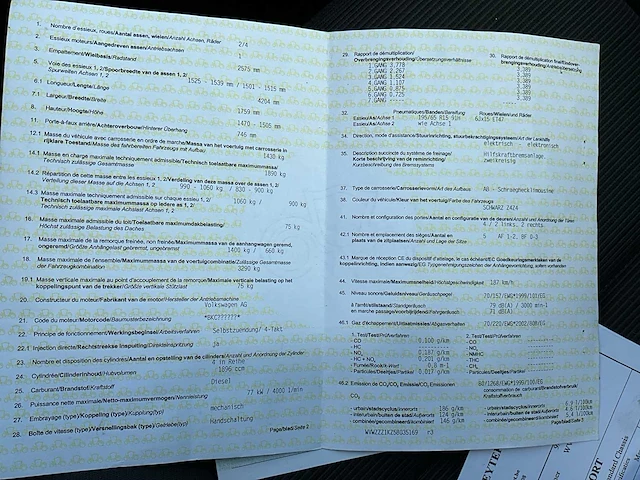 1. Nombre d'essieux, roues/Aantal assen, wielen/Anzahl Achsen, Räder
2/4
2. Essieux moteurs/Aangedreven assen/Antriebsachsen
1
3. Empattement/Wielbasis/Radstand
2575 mm
5. Voie des essieux 1, 2/Spoorbreedte van de assen 1, 2/
Spurweiten Achsen 1, 2
1525 - 1539 mm / 1501 - 1515 mm
6.1 Longueur/Lengte/Länge
4204 mm
7.1 Largeur/Breedte/Breite
1759 mm
8. Hauteur/Hoogte/Höhe
1470 - 1505 mm
11. Porte-à-faux arrière/Achteroverbouw/Hinterer Überhang
745 mm
12.1 Masse du véhicule avec carrosserie en ordre de marche/Massa van het voertuig met carrosserie in
rijklare Toestand/Masse des fahrbereiten Fahrzeugs mit Aufbau
1430 kg
14.1 Masse en charge maximale techniquement admissible/Technisch toelaatbare maximummassa/
Technisch zulässige Gesamtmasse
1890 kg
14.2 Répartition de cette masse entre les essieux 1, 2/Verdeling van deze massa over de assen 1, 2/
Verteilung dieser Masse auf die Achsen 1, 2
990 - 1060 kg / 830 - 900 kg
14.3 Masse maximale techniquement admissible sur chaque essieu 1, 2/
Technisch toelaatbare maximummassa op iedere as 1, 2/
Technisch zulässige maximale Achslast Achsen 1, 2
1060 kg / 900 kg
16. Masse maximale admissible du toit/Toelaatbare maximumdakbelasting/
Höchst zulässige Belastung des Daches
75 kg
17. Masse maximale de la remorque freinée, non freinée/Maximummassa van de aanhangwagen geremd,
ongeremd/Größte Anhängelast gebremst, ungebremst
1400 kg / 660 kg
18. Masse maximale de l'ensemble/Maximummassa van de voertuigcombinatie/Zulässige Gesamtmasse
der Fahrzeugkombination
3290 kg
19.1 Masse verticale maximale au point d'accouplement de la remorque/Maximale verticale belasting op het
koppelingspunt van de trekker/Größte vertikale Stützlast
75 kg
20. Constructeur du moteur/Fabrikant van de motor/Hersteller der Antriebsmaschine
Volkswagen AG
21. Code du moteur/Motorcode/Baumusterbezeichnung
*BKC??????*
22. Principe de fonctionnement/Werkingsbeginsel/Arbeitsverfahren
Selbstzündung/ 4-Takt
22.1 Injection directe/Rechtstreekse Inspuiting/Direkteinspritzung
ja
23. Nombre et disposition des cylindres/Aantal en opstelling van de cilinders/Anzahl und Anordnung der Zylinder
4 in Reihe
24. Cylindrée/Cilinderinhoud/Hubvolumen
1896 ccm
25. Carburant/Brandstof/Kraftstoff
Diesel
26. Puissance nette maximale/Netto-maximumvermogen/Nennleistung
77 kW / 4000 1/min
27. Embrayage (type)/Koppeling (type)/Kupplung(typ)
mechanisch
28. Boîte de vitesse (type)/Versnellingsbak (type)/Getriebe(typ)
Handschaltung
Page/blad/Seite 2
29. Rapport de démultiplication/
Overbrengingsverhouding/Übersetzungsverhältnisse
1.GANG 3,778
2.GANG 2,267
3.GANG 1,524
4.GANG 1,107
5.GANG 0,875
6.GANG 0,725
7.GANG
30. Rapport de démultiplication final/
3,389
3,389
3,389
3,389
3,389
32. Pneumatiques/Banden/Bereifung Roues/Wielen/und Räder
Essieu/As/Achse 1 195/65 R15 91H 6Jx15 ET47
Essieu/As/Achse 2 wie Achse 1
34. Direction, mode d'assistance/Stuurinrichting, stuurbekrachtigingssysteem/Art der Lenkhilfe
elektrisch - elektronisch
35. Description succincte du système de freinage/
Korte beschrijving van de reminrichting/
Kurzbeschreibung des Bremssystems
Hilfskraftbremsanlage,
zweikreisig
37. Type de carrosserie/Carrosserievorm/Art des Aufbaus
AB - Schraegheckl​imousine
38. Couleur du véhicule/Kleur van het voertuig/Farbe des Fahrzeugs
SCHWARZ Z4Z4
41. Nombre et configuration des portes/Aantal en configuration van de deuren/Anzahl und Anordnung der Türen
4 / 2 links, 2 rechts
42.1 Nombre et emplacement des sièges/Aantal en
plaats van de zitplaatsen/Anzahl und Lage der Sitze
5 AF 1-2, BF 0-3
43.1 Marque de réception CE du dispositif d'attelage, le cas échéant/EG Goedkeuringsmerkteken van de
koppelinrichting, indien aanwezig/EG Typgenehmigungszeichen der Anhängevorrichtung, sofern vorhanden
44. Vitesse maximale/Maximumsnelheid/Höchstgeschwindigkeit
187 km/h
45. Niveau sonore/Geluidsniveau/Geräuschpegel
70/157/EWG*1999/101/EG
à l'arrêt/stilstaand/Standgeräusch 79 dB(A) / 3000 min-1
en marche passage/voorbijrijdend/Fahrgeräusch 71 dB(A)
46.1 Gaz d'échappement/Uitlaatemissies/Abgasverhalten
70/220/EWG*2002/80B/EG
1. Test/Test/Prüfverfahren 2. Test/Test/Prüfverfahren
- CO 0,100 g/km - CO
- HC - NOx
- NOx 0,187 g/km - NMHC
- HC + NOx 0,201 g/km - THC
- Fumée/Rook/k-Wert 0,8 m-1 - CH4
- Particules/Deeltjes/Partikel 0,017 g/km - Particules/Deeltjes/Partikel
46.2 Emission de CO2/CO2 Emissie/CO2 Emissionen
80/1268/EWG*1999/100/EG
CO2
consommation de carburant/Brandstofverbruik/
Kraftstoffverbrauch
- urbain/stadscyclus/innerorts 186 g/km - urbain/stadscyclus/innerorts 6,9 l/100km
- interurbain/buiten de stad/außerorts 124 g/km - interurbain/buiten de stad/außerorts 4,6 l/100km
- combinée/gecombineerd/kombiniert 146 g/km - combinée/gecombineerd/kombiniert 5,4 l/100km
WVWZZZ1KZ5B035169 r3
Page/blad/Seite 3